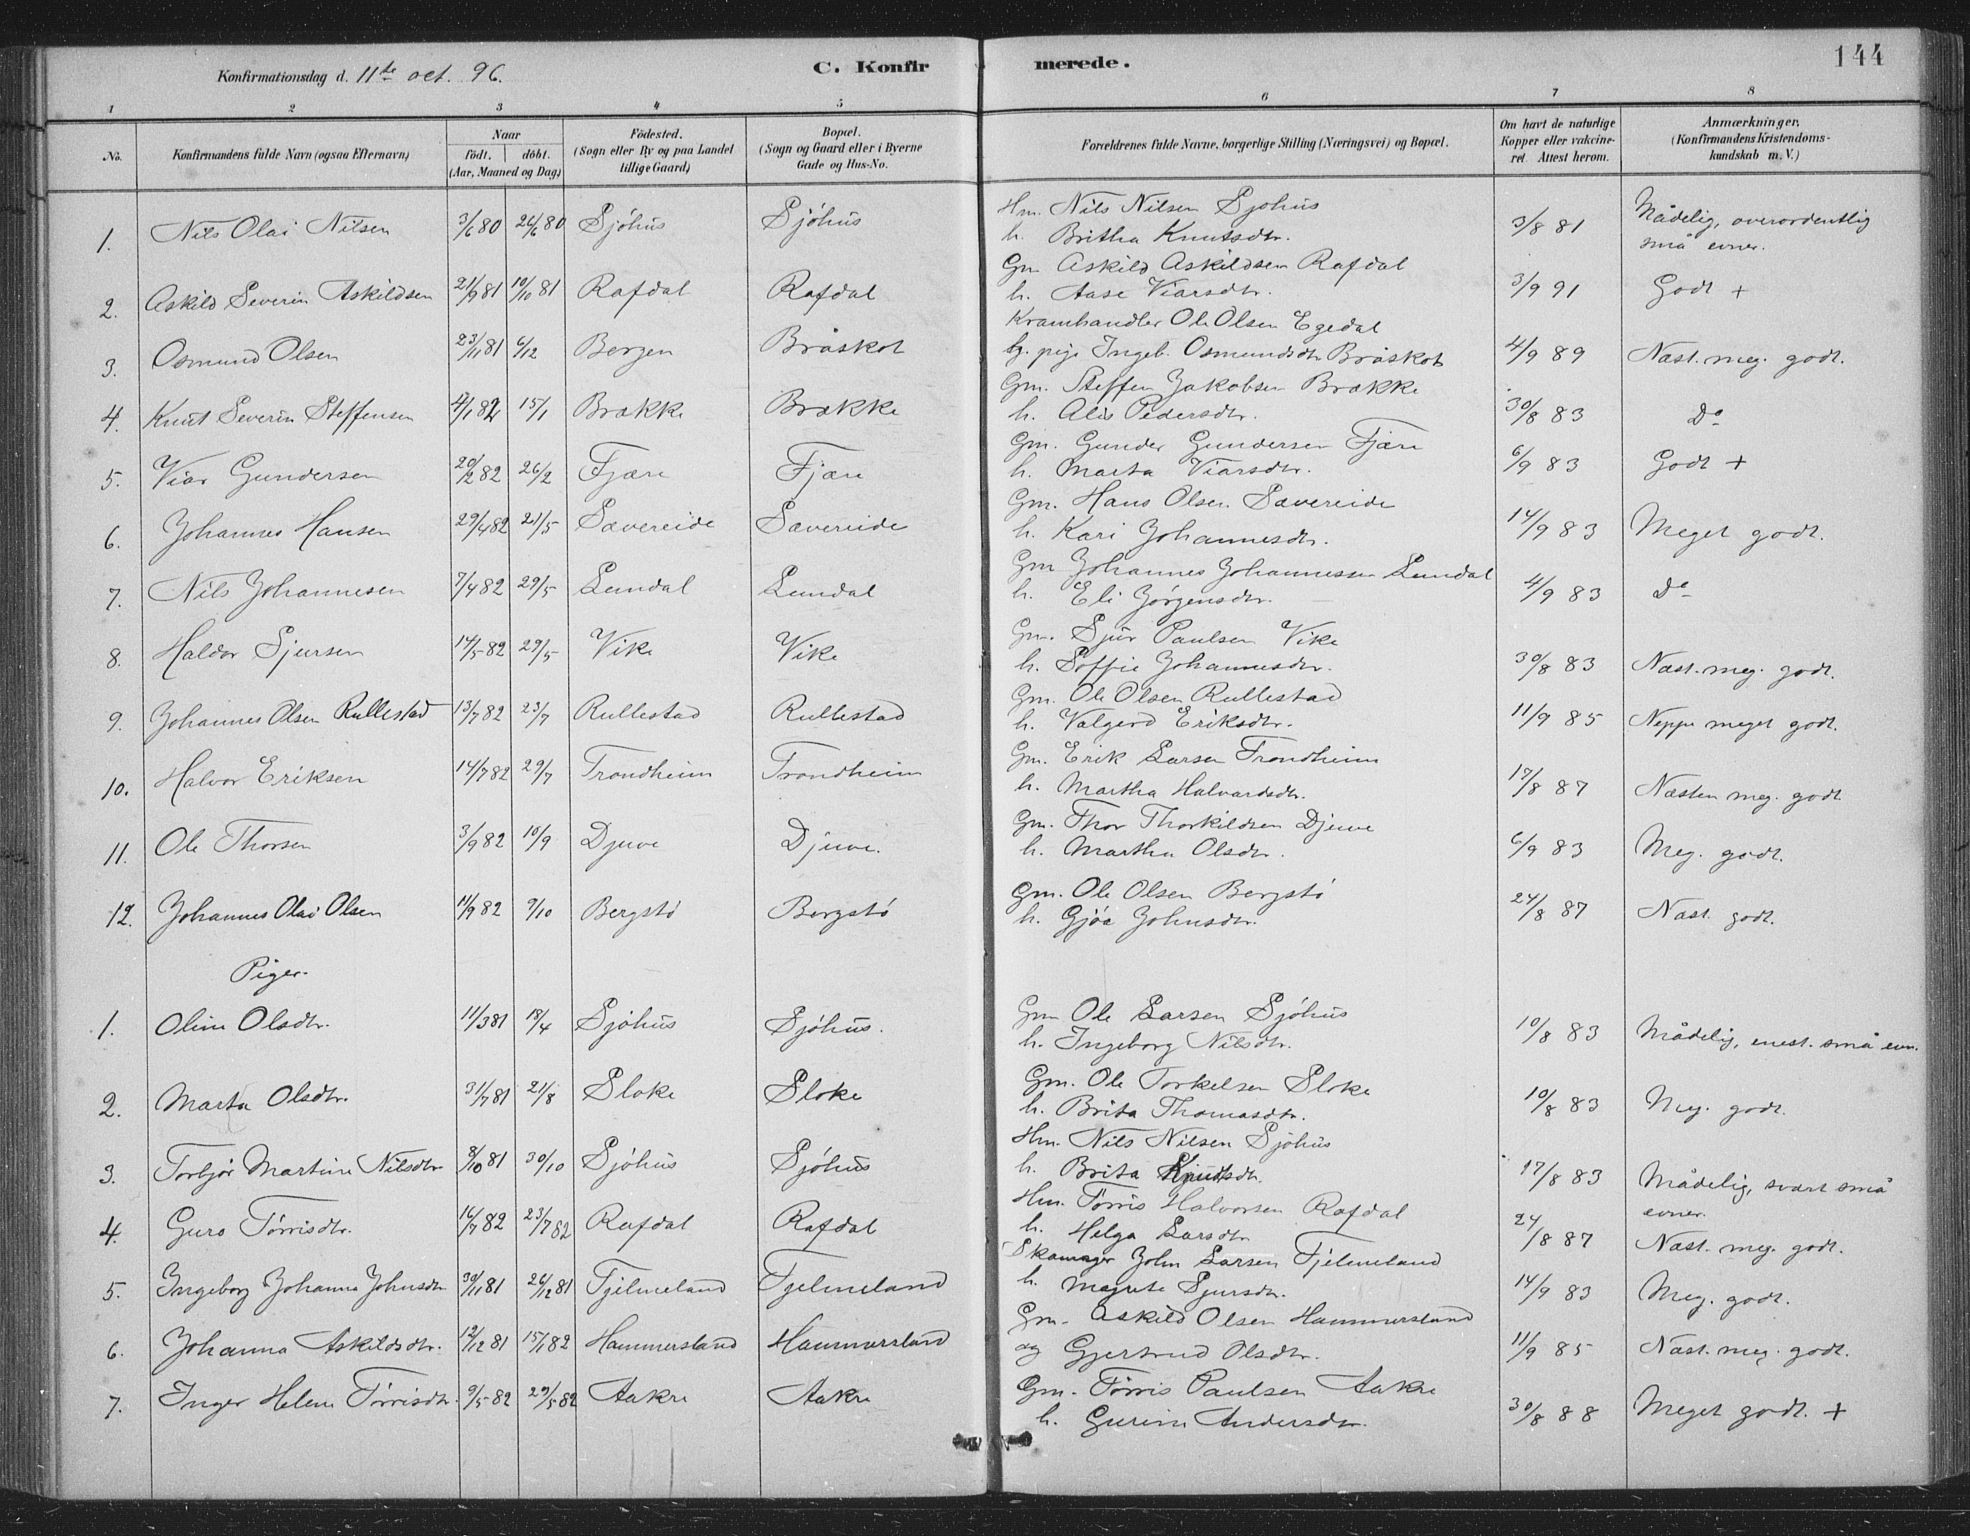 Konfirmationsdag d. 11te oct. 96. C. Konfirmerede. 144
1 2 3 4 5 6 7 8
No. Konfirmandens fulde Navn (ogsaa Efternavn) Naar födt, döbt. (Aar, Maaned og Dag) Födested. (Sogn eller By og paa Landet tillige Gaard) Bopæl. (Sogn og Gaard eller i Byerne Gade og Hus-No. Forældrenes fulde Navne, borgerlige Stilling (Næringsvei) og Bopæl. Om havt de naturlige Kopper eller vakcineret. Attest herom. Anmærkninger, (Konfirmandens Kristendomskundskab m. V.)
1. Nils Olai Nilsen 3/6 80 26/6 80 Sjöhus Sjöhus Hm. Nils Nilsen Sjöhus 3/8 81 Mådelig, overordentlig
h. Britha Knutsdtr. små evner.
2. Askild Severin Askildsen 21/9 81 10/10 81 Rafdal Rafdal Gm Askild Askildsen Rafdal 3/9 91 Godt +
h. Aase Viarsdtr.
3. Osmund Olsen 23/11 81 6/12 Bergen Bråskot Kramhandler Ole Olsen Egedal 4/9 89 Næst. meg. godt.
og pige Ingeb. Osmundsdtr Bråskot
4. Knut Severin Steffensen 4/1 82 15/1 Brække Brække Gm. Steffen Jakobsen Brække 30/8 83 Do
h. Alis Pedersdtr.
5. Viar Gundersen 20/2 82 26/2 Fjære Fjære Gm. Gunder Gundersen Fjære 6/9 83 Godt +
h. Marta Viarsdtr.
6. Johannes Hansen 29/4 82 21/5 Sævereide Sævereide Gm. Hans Olsen Sævereide 14/9 83 Meget godt.
h. Kari Johannesdtr.
7. Nils Johannesen 7/4 82 29/5 Lundal Lundal Gm Johannes Johannessen Lundal 4/9 83 Do
h. Eli Jörgensdtr.
8. Haldor Sjursen 14/5 82 29/5 Vike Vike Gm. Sjur Paulsen Vike 30/8 83 Næst. meg. godt.
h. Soffie Johannesdtr.
9. Johannes Olsen Rullestad 13/7 82 23/7 Rullestad Rullestad Gm. Ole Olsen Rullestad 11/9 85 Neppe meget godt.
h. Valgerd Eriksdtr.
10. Halvor Eriksen 14/7 82 29/7 Trondheim Trondheim Gm. Erik Larsen Trondheim 17/8 87 Næsten meg. godt
h. Martha Halvardsdtr.
11. Ole Thorsen 3/9 82 10/9 Djuve Djuve. Gm. Thor Thorkildsen Djuve 6/9 83 Meg. godt.
h. Martha Olsdtr.
12. Johannes Olai Olsen 11/9 82 9/10 Bergstö Bergstö Gm. Ole Olsen Bergstö 24/8 87 Næst. godt.
h. Gjöa Johnsdtr.
Piger.
1. Oline Olsdtr. 11/3 81 18/4 Sjöhus Sjöhus. Gm Ole Larsen Sjöhus 10/8 83 Mådelig, enest. små evn.
h. Ingeborg Nilsdtr.
2. Marta Olsdtr. 31/7 81 21/8 Sloke Sloke Gm. Ole Torkelsen Sloke 10/8 83 Meg. godt.
h. Brita Thomasdtr.
3. Torbjör Martine Nilsdtr 8/10 81 30/10 Sjöhus Sjöhus Hm. Nils Nilsen Sjöhus 17/8 83 Mådelig, svært små
h. Brita Knutsdtr. evner.
4. Guro Törrisdtr. 16/7 82 23/7 82 Rafdal Rafdal Hm. Törris Halvorsen Rafdal 24/8 87 Næst. meg. godt.
h. Helga Larsdtr
5. Ingeborg Johanna Johnsdtr 30/11 81 26/12 81 Fjelmeland Fjelmeland Skomager John Larsen Fjelmeland 14/9 83 Meg. godt.
h. Magrete Sjursdtr.
6. Johanna Askildsdtr. 12/12 81 15/1 82 Hammersland Hammersland Gm. Askild Olsen Hammersland 11/9 85 Næst. meg. godt.
og Gjertrud Olsdtr.
7. Inger Helene Törrisdtr. 9/5 82 29/5 82 Aakre Aakre Gm. Törris Paulsen Aakre 30/8 88 Meget godt. +
h. Gurine Andersdtr.